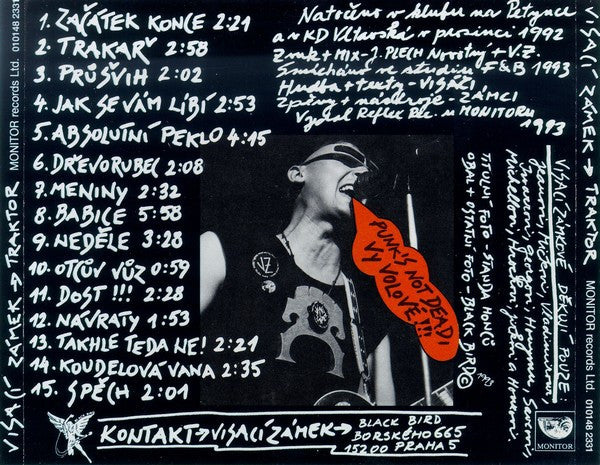 1. ZAČÁTEK KONCE 2:21
2. TRAKAŘ 2:58
3. PRŮŠVIH 2:02
4. JAK SE VÁM LÍBÍ 2:53
5. ABSOLUTNÍ PEKLO 4:15
6. DŘEVORUBEC 2:08
7. MENINY 2:32
8. BABICE 5:58
9. NEDĚLE 3:28
10. OTCŮV VŮZ 0:59
11. DOST !!! 2:28
12. NÁVRATY 1:53
13. TAKHLE TEDA NE! 2:21
14. KOUDELOVÁ VANA 2:35
15. SPĚCH 2:01
Natočeno v klubu na Petynce
a v KD Vltavská v prosinci 1992
Zvuk + MIX - J. PLECH Novotný + V.Z.
Smícháno ve studiu F&B 1993
Hudba + texty - VISÁČI
Zpěvy + nástroje - ZÁMCI
Vydal Reflex Rec. u MONITORU
1993
PUNK'S NOT DEAD!
VY VOLOVÉ!!!
VZ
TITULNÍ FOTO - STANDA HONCŮ
OBAL + OSTATNÍ FOTO - BLACK BIRD © 1993
VISACÍ ZÁMKOVÉ DĚKUJÍ POUZE:
KONTAKT → VISACÍ ZÁMEK →
BLACK BIRD
BORSKÉHO 665
15200 PRAHA 5
VISACÍ ZÁMEK → TRAKTOR
MONITOR records Ltd.
010148 2331
VISACÍ ZÁMEK → TRAKTOR
MONITOR records Ltd.
010148 2331
MONITOR